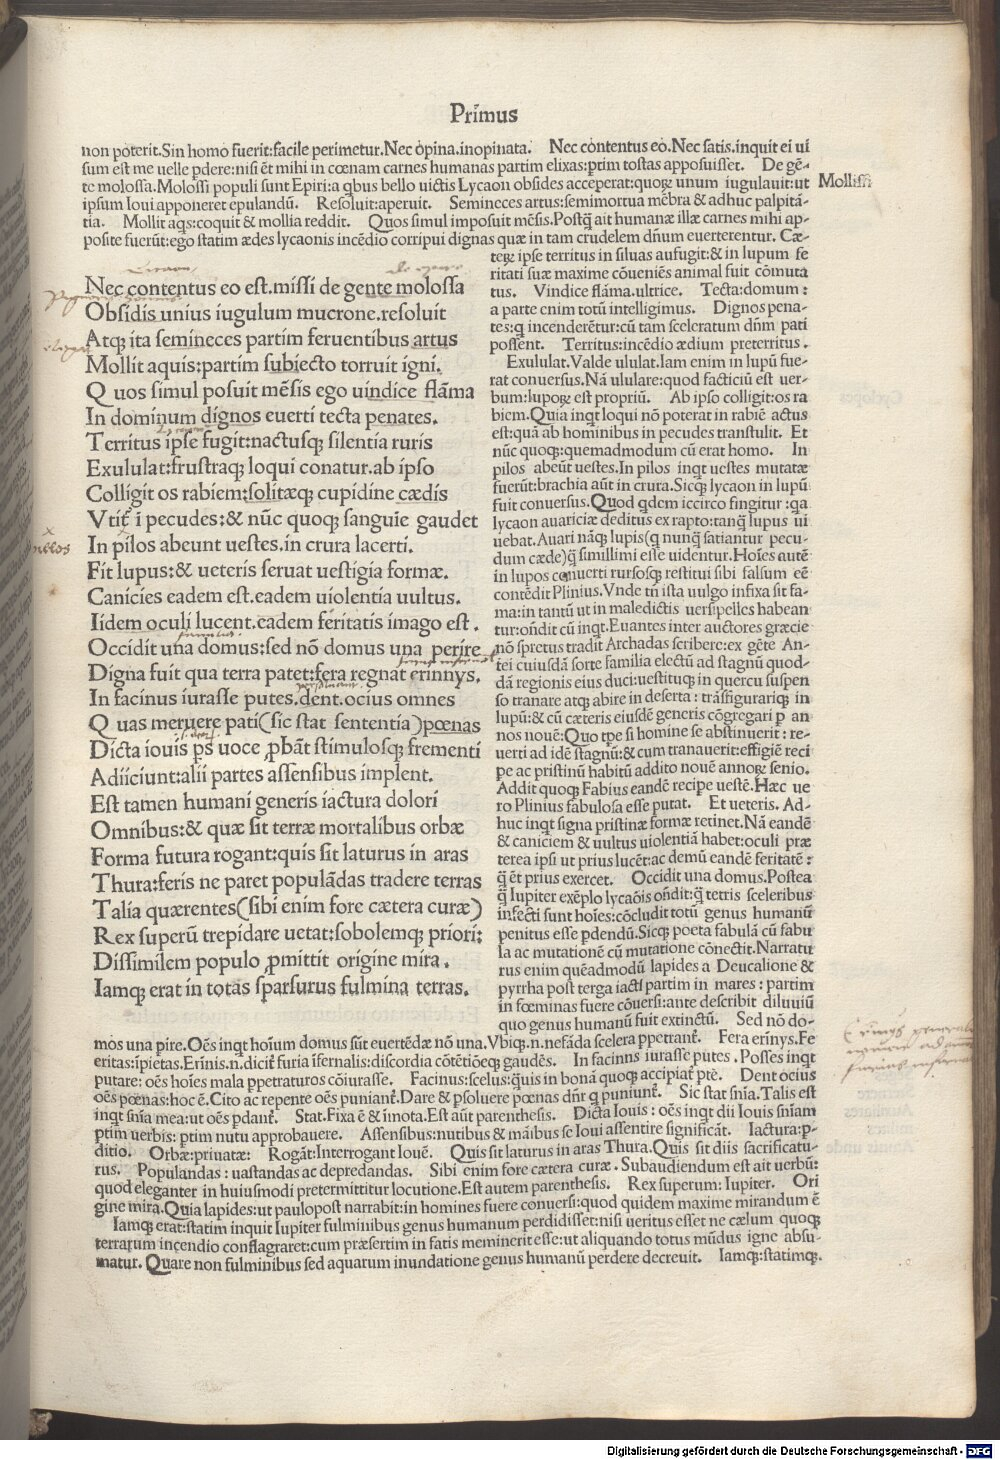 Primus
non poterit.Sin homo fuerit:facile perimetur.Nec opina.inopinata. Nec contentus eo.Nec satis.inquit ei ui
sum est me uelle pdere:nisi ēt mihi in cœnam carnes humanas partim elixas:ptim tostas apposuisset. De gē-
te molossa.Molossi populi sunt Epiri:a qbus bello uictis Lycaon obsides acceperat:quoꝝ unum iugulauit:ut
Molissi
ipsum Ioui apponeret epulandū. Resoluit:aperuit. Semineces artus:semimortua mēbra & adhuc palpitā-
tia. Mollit aqs:coquit & mollia reddit. Quos simul imposuit mēsis.Postq̄ ait humanæ illæ carnes mihi ap-
posite fuerūt:ego statim ædes lycaonis incēdio corripui dignas quæ in tam crudelem dñum euerterentur. Cæ-
teꝝ ipse territus in siluas aufugit:& in lupum fe
ritati suæ maxime cōueniēs animal fuit cōmuta
tus. Vindice flāma.ultrice. Tecta:domum :
a parte enim totū intelligimus. Dignos pena-
tes:q incenderētur:cū tam sceleratum dñm pati
possent. Territus:incēdio ædium preterritus .
Exululat.Valde ululat.Iam enim in lupū fue-
rat conuersus.Nā ululare:quod facticiū est uer-
bum:lupoꝝ est propriū. Ab ipso colligit:os ra
biem.Quia inqt loqui nō poterat in rabiē actus
est:quā ab hominibus in pecudes transtulit. Et
nūc quoq;:quemadmodum cū erat homo. In
pilos abeūt uestes.In pilos inqt uestes mutatæ
fuerūt:brachia aūt in crura.Sicq; lycaon in lupū
fuit conuersus.Quod qdem iccirco fingitur :qa
lycaon auariciæ deditus ex rapto:tanq̄ lupus ui
uebat.Auari nāq; lupis(q nunq̄ satiantur pecu-
dum cæde)q̄ simillimi esse uidentur.Hoīes autē
in lupos conuerti rursosq; restitui sibi falsum eē
contēdit Plinius.Vnde tñ ista uulgo infixa sit fa-
ma:in tantū ut in maledictis uersipelles habean
tur:oñdit cū inqt.Euantes inter auctores græcie
nō spretus tradit Archadas scribere:ex gēte An-
tei cuiusdā sorte familia electū ad stagnū quod-
dā regionis eius duci:uestituq; in quercu suspen
so tranare atq; abire in deserta : trāsfigurariq; in
lupū:& cū cæteris eiusdē generis cōgregari p an
nos nouē:Quo tpe si homine se abstinuerit : re-
uerti ad idē stagnū:& cum tranauerit:effigiē reci
pe ac pristinū habitū addito nouē annoꝝ senio.
Addit quoq; Fabius eandē recipe uestē.Hæc ue
ro Plinius fabulosa esse putat. Et ueteris. Ad-
huc inqt signa pristinæ formæ retinet.Nā eandē
& caniciem & uultus uiolentiā habet:oculi præ
terea ipsi ut prius lucēt:ac demū eandē feritatē :
q̄ ēt prius exercet. Occidit una domus.Postea
q̄ Iupiter exēplo lycaōis oñdit:q̄ tetris sceleribus
infecti sunt hoīes:cōcludit totū genus humanū
penitus esse pdendū.Sicq; poeta fabulā cū fabu
la ac mutationē cū mutatione cōnectit.Narratu
rus enim quēadmodū lapides a Deucalione &
pyrrha post terga iacti partim in mares : partim
in fœminas fuere cōuersi:ante describit diluuiū
quo genus humanū fuit extinctū. Sed nō do-
Nec contentus eo est.missi de gente molossa
Obsidis unius iugulum mucrone.resoluit
Atq; ita semineces partim feruentibus artus
Mollit aquis:partim subiecto torruit igni.
Q uos simul posuit mēsis ego uindice flāma
In dominum dignos euerti tecta penates.
Territus ipse fugit:nactusq; silentia ruris
Exululat:frustraq; loqui conatur.ab ipso
Colligit os rabiem:solitæq; cupidine cædis
Vtit̄ ī pecudes:& nūc quoq; sanguīe gaudet
In pilos abeunt uestes.in crura lacerti.
Fit lupus:& ueteris seruat uestigia formæ.
Canicies eadem est.eadem uiolentia uultus.
Iidem oculi lucent.eadem feritatis imago est .
Occidit una domus:sed nō domus una perire
Digna fuit qua terra patet:fera regnat erinnys.
In facinus iurasse putes.dent.ocius omnes
Q uas meruere pati(sic stat sententia)pœnas
Dicta iouis ps uoce ꝓbāt stimulosq; frementi
Adiiciunt:alii partes assensibus implent.
Est tamen humani generis iactura dolori
Omnibus:& quæ sit terræ mortalibus orbæ
Forma futura rogant:quis sit laturus in aras
Thura:feris ne paret populādas tradere terras
Talia quærentes(sibi enim fore cætera curæ)
Rex superū trepidare uetat:sobolemq; priori:
Dissimilem populo ꝓmittit origine mira .
Iamq; erat in totas sparsurus fulmina terras.
mos una pire.Oēs inqt hoīum domus sūt euertēdæ nō una.Vbiq;.n.nefāda scelera ppetrant̄. Fera erinys.Fe
eritas:ipietas.Erīnis.n.dicit̄ furia īfernalis:discordia cōtētiōeq; gaudēs. In facinns iurasse putes . Posses inqt
putare: oēs hoīes mala ppetraturos cōiurasse. Facinus:scelus:q̄uis in bonā quoq; accipiat̄ ptē. Dent ocius
oēs pœnas:hoc ē.Cito ac repente oēs puniant̄.Dare & psoluere pœnas dñr q puniunt̄. Sic stat snīa.Talis est
inqt snīa mea:ut oēs pdant̄. Stat.Fixa ē & īmota.Est aūt parenthesis. Dicta Iouis : oēs inqt dii Iouis snīam
ptim uerbis: ptim nutu approbauere. Assensibus:nutibus & māibus se Ioui assentire significāt. Iactura:p-
ditio. Orbæ:priuatæ: Rogāt:Interrogant Iouē. Quis sit laturus in aras Thura.Quis sit diis sacrificatu-
rus. Populandas : uastandas ac depredandas. Sibi enim fore cætera curæ . Subaudiendum est ait uerbū:
quod eleganter in huiusmodi pretermittitur locutione.Est autem parenthesis. Rex superum: Iupiter. Ori
gine mira.Quia lapides:ut paulopost narrabit:in homines fuere conuersi:quod quidem maxime mirandum ē
Iamq; erat:statim inquit Iupiter fulminibus genus humanum perdidisset:nisi ueritus esset ne cælum quoq;
terrarum incendio conflagraret:cum præsertim in fatis meminerit esse:ut aliquando totus mūdus igne absu-
matur. Quare non fulminibus sed aquarum inundatione genus humanū perdere decreuit. Iamq;:statimq;.
Digitalisierung gefördert durch die Deutsche Forschungsgemeinschaft - DFG